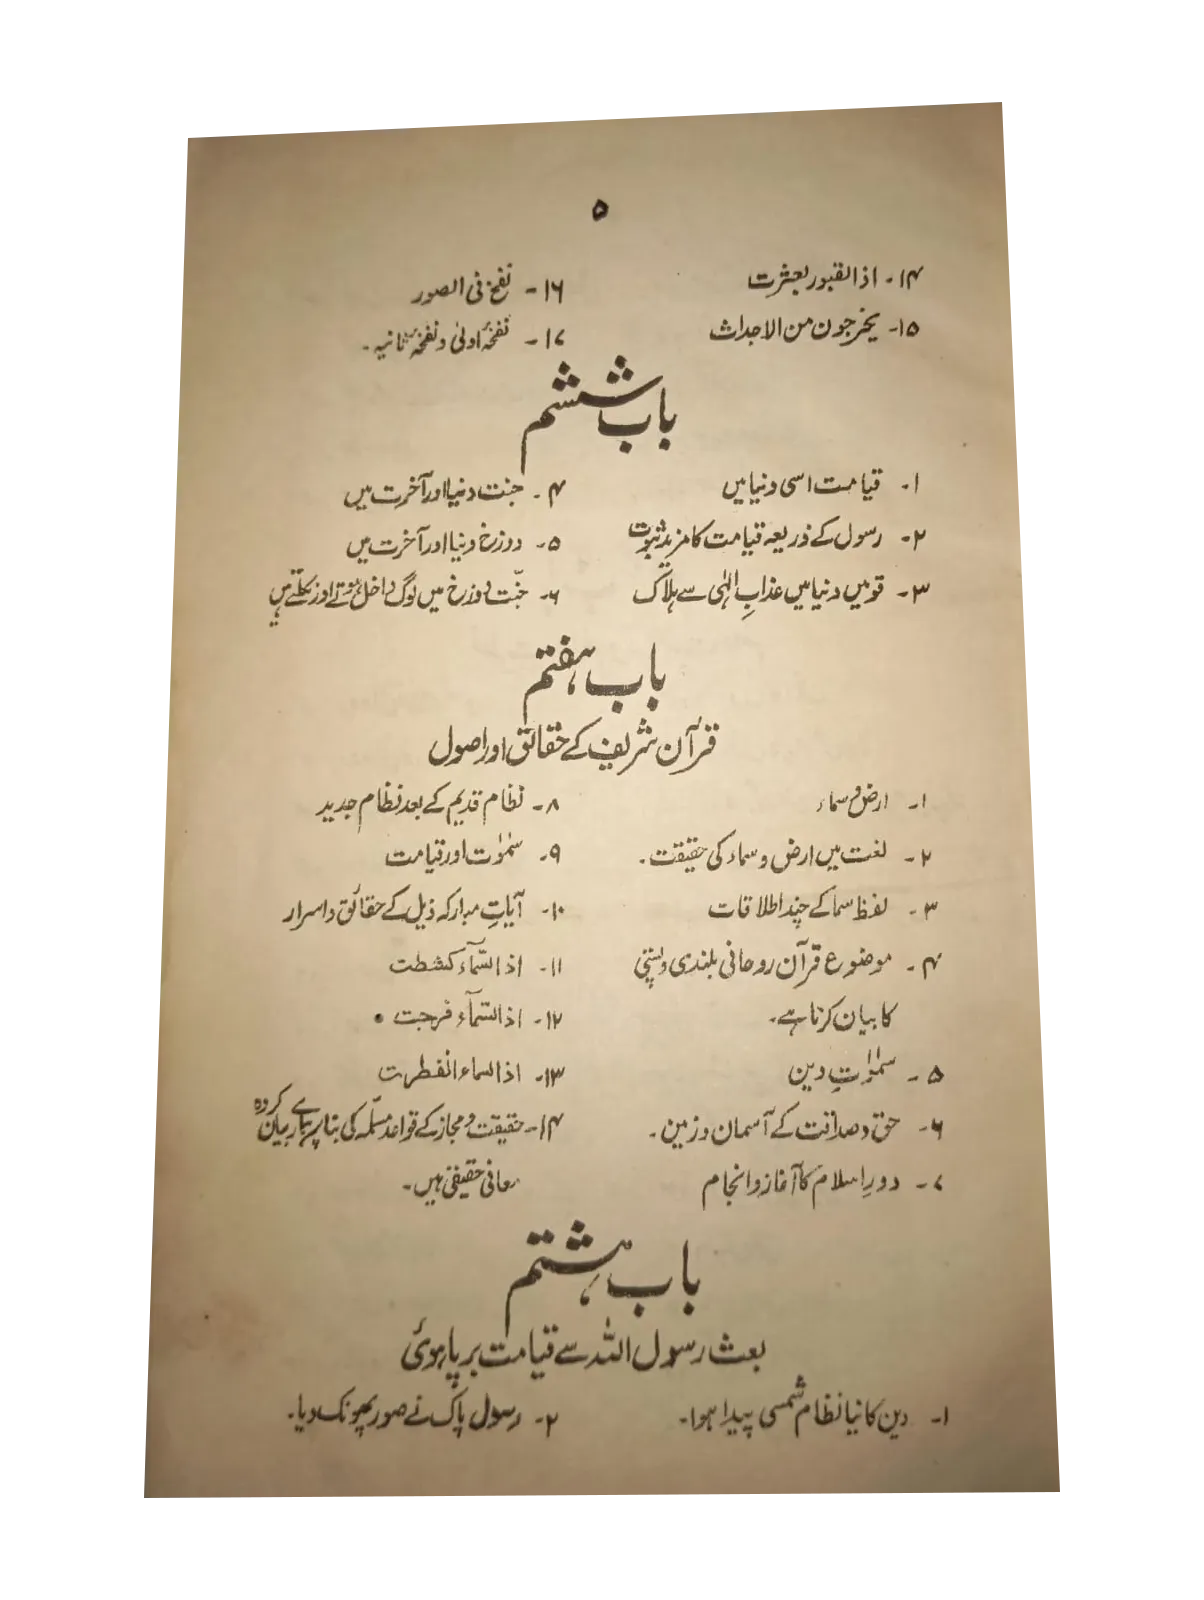 ۵
۱۴- اذا لقبور بعثرت
۱۵- یخرجون من الاجداث
۱۶- نفخ فی الصور
۱۷- نفخۂ اولیٰ و نفخۂ ثانیہ۔
باب ششم
۱- قیامت اسی دنیا میں
۲- رسول کے ذریعہ قیامت کا مزید ثبوت
۳- قومیں دنیا میں عذابِ الہٰی سے ہلاک
۴- جنت دنیا اور آخرت میں
۵- دوزخ دنیا اور آخرت میں
۶- جنّت دوزخ میں لوگ داخل ہوتے اور نکلتے ہیں
باب ہفتم
قرآن شریف کے حقائق اور اصول
۱- ارض و سماء
۲- لغت میں ارض و سماء کی حقیقت۔
۳- لفظ سما کے چند اطلاقات
۴- موضوع قرآن روحانی بلندی و پستی
کا بیان کرنا ہے۔
۵- سمٰوٰتِ دین
۶- حق و صداقت کے آسمان و زمین۔
۷- دورِ اسلام کا آغاز و انجام
۸- نظام قدیم کے بعد نظام جدید
۹- سمٰوٰت اور قیامت
۱۰- آیاتِ مبارکہ ذیل کے حقائق و اسرار
۱۱- اذا السّمآء کشطت
۱۲- اذا السّمآء فرجت
۱۳- اذا السماء انفطرت
۱۴- حقیقت و مجاز کے قواعد مسلّمہ کی بنا پر ہمارے بیان کردہ
معانی حقیقی ہیں۔
باب ہشتم
بعث رسول اللہ سے قیامت برپا ہوئی
۱- دین کا نیا نظام شمسی پیدا ہوا۔
۲- رسول پاک نے صور پھونک دیا۔